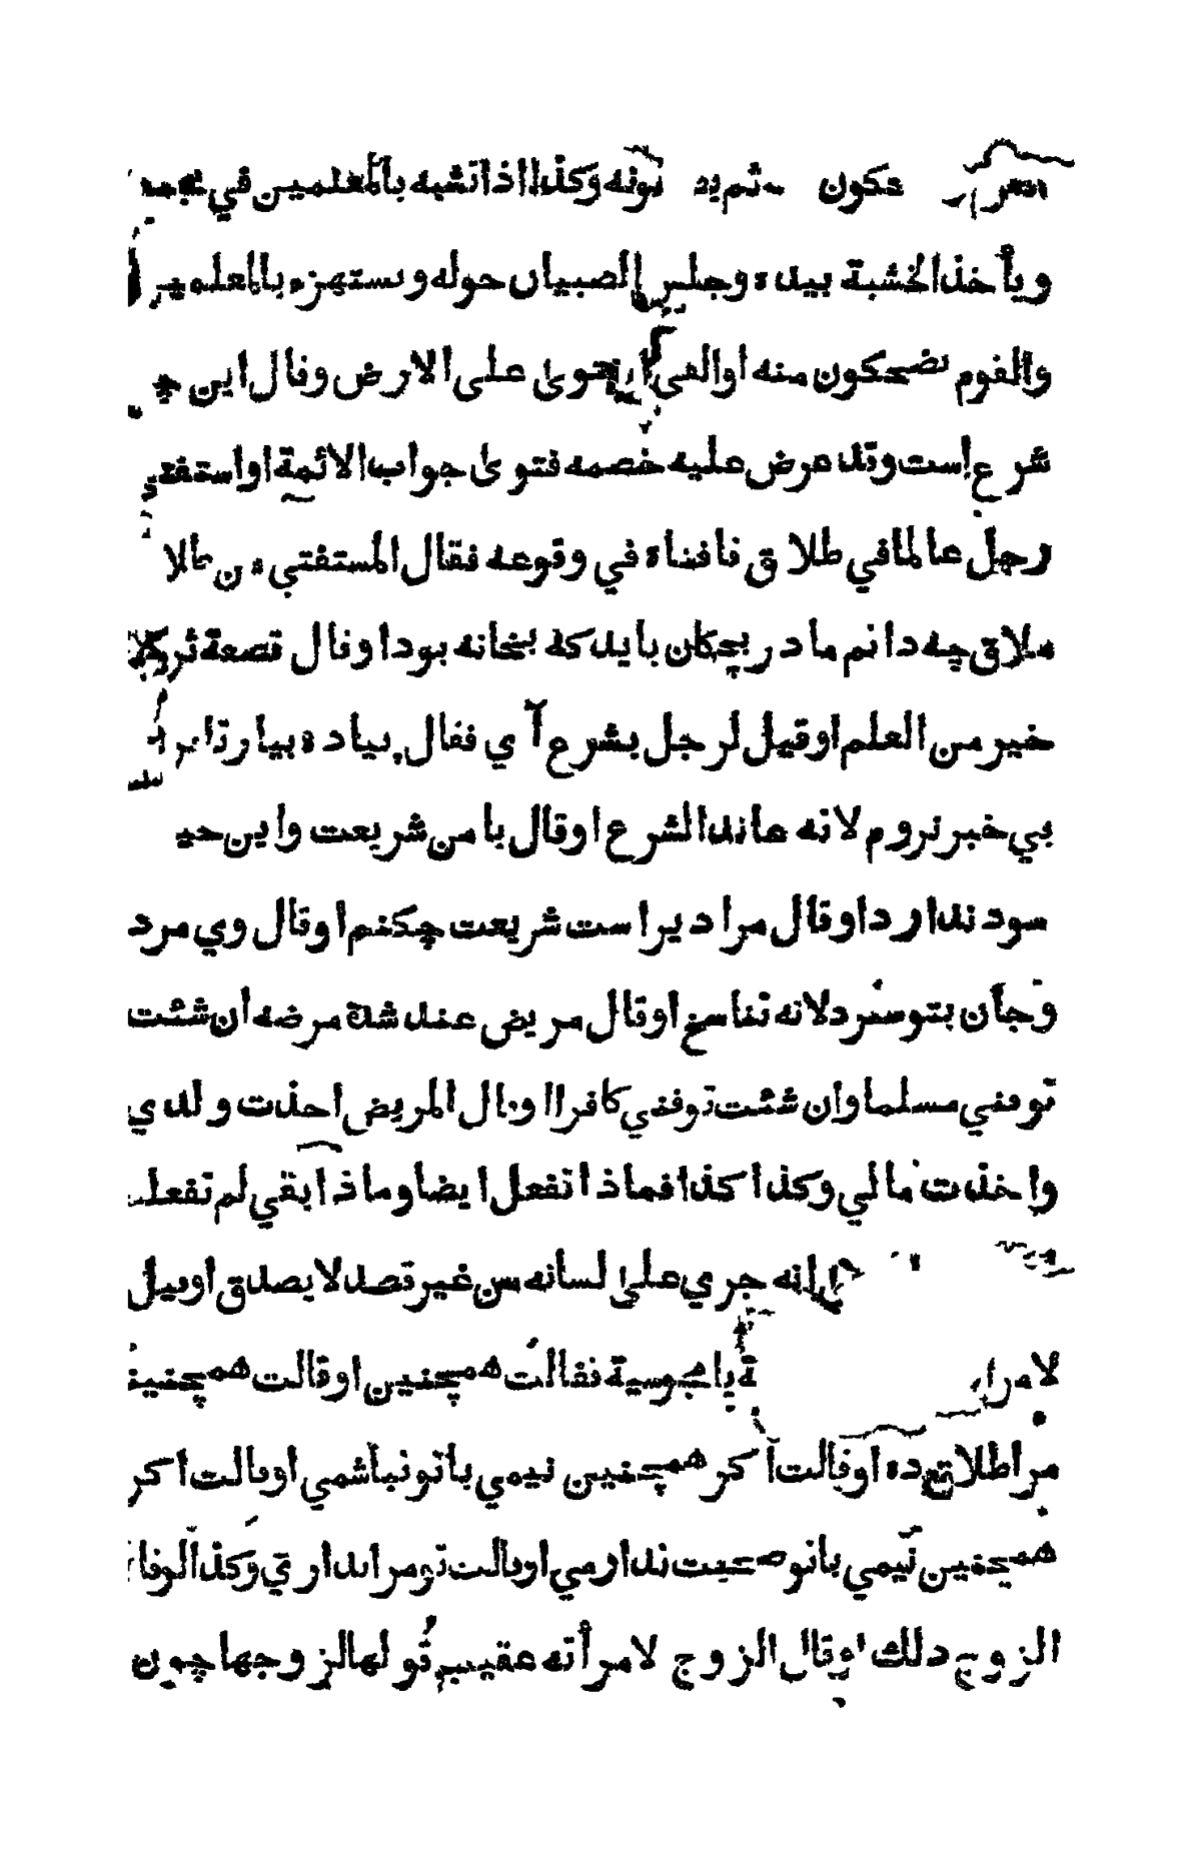 يضحكون ثم يد نونه وكذا اذا تشبه بالمعلمين في
ويأخذ الخشبة بيده وجلس الصبيان حوله ويستهزء بالمعلمين
والقوم يضحكون منه او القى الفتوى على الارض وقال اين چه
شرع است وقد عرض عليه خصمه فتوى جواب الائمة او استفتى
رجل عالما في طلاق فافتاه في وقوعه فقال المستفتي من
طلاق چه دانم مادر بچكان بايد كه بخانه بود او قال قصعة ثريد
خير من العلم او قيل لرجل بشرع آي فقال پياده بيار تا
بي خبر نروم لانه عاند الشرع او قال با من شريعت واين حيل
سود ندارد او قال مرا ديراست شريعت چكنم او قال وي مرد
وجان بتو سپرد لانه تناسخ او قال مريض عند شدة مرضه ان شئت
توفني مسلما وان شئت توفني كافرا او قال المريض اخذت ولدي
واخذت مالي وكذا كذا فماذا تفعل ايضا وماذا بقي لم تفعله
انه جري على لسانه من غير قصد لا يصدق او قيل
لامرأة يا مجوسية فقالت همچنين او قالت همچنينم
مرا طلاق ده او قالت اكر همچنين نيمي با تو نباشمي او قالت اكر
همچنين نيمي با تو صحبت ندارمي او قالت تو مرا نداري وكذا لو قال
الزوج ذلك او قال الزوج لامرأته عقيب قولها لزوجها چون